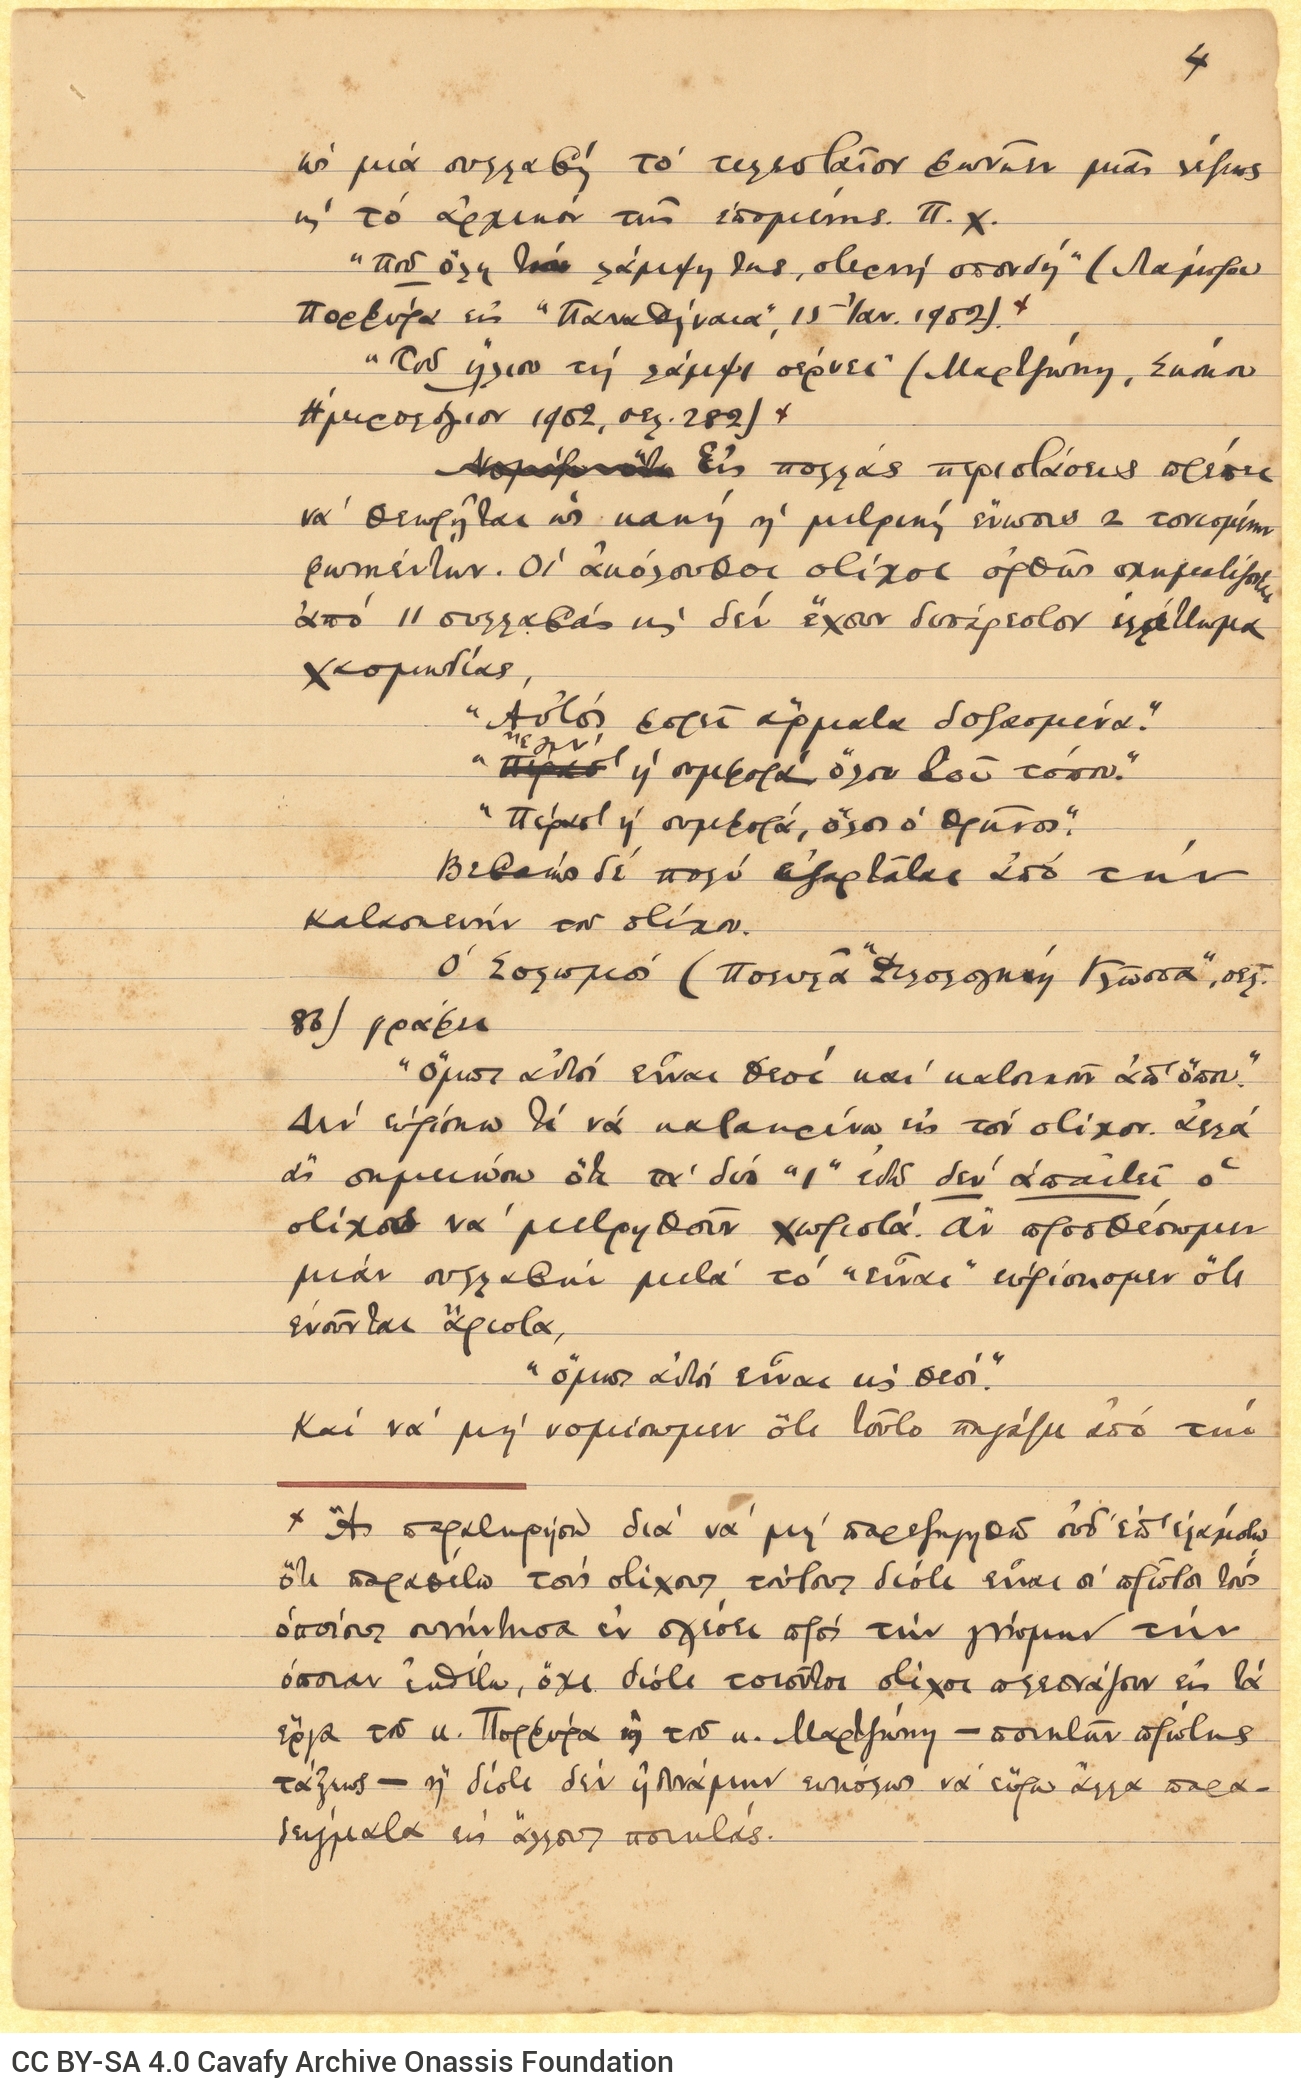 4
ὡς μιά συλλαβή τό τελευταῖον φωνῆεν μιᾶς λέξεως
κ' τό ἀρχικόν τῆς ἑπομένης. Π. χ.
"ποῦ ὅλη λάμψη της, στερνή σπονδή" (Λάμπρου
Πορφύρα εἰς "Παναθήναια", 15 Ἰαν. 1902). *
"Τοῦ ἥλιου τή λάμψι σέρνει" (Μαρτζώκη, Σκόκου
Ἡμερολόγιον 1902, σελ. 282) *
Εἰς πολλάς περιστάσεις πρέπει
νά θεωρῆται ὡς κακή ἡ μετρική ἕνωσις 2 τονισμένων
φωνηέντων. Οἱ ἀκόλουθοι στίχοι ὀρθῶς σχηματίζονται
ἀπό 11 συλλαβάς κ' δέν ἔχουν δυσάρεστον ἐλάττωμα
χασμωδίας,
"Αὐτός φορεῖ ἅρματα δοξασμένα."
"κλαῖν' ἡ συμφορά ὅλου τοῦ τόπου."
"Πέρασ' ἡ συμφορά, ὅλος ὁ θρῆνος".
Βεβαίως δέ πολύ ἐξαρτᾶται ἀπό τήν
κατασκευήν τοῦ στίχου.
Ὁ Σολωμός (Πολυλᾶ "Φιλολογική Γλῶσσα", σελ.
86) γράφει
"ὅμως αὐτοί εἶναι θεοί καί κατοικοῦν ἀπ' ὅπου."
Δέν εὑρίσκω τί νά κατακρίνω εἰς τόν στίχον. ἀλλά
ἄς σημειώσω ὅτι τά δύο "ι" ἐδῶ δέν ἀπαιτεῖ ὁ
στίχος νά μετρηθοῦν χωριστά. Ἄν προσθέσωμεν
μιάν συλλαβήν μετά τό "εἶναι" εὑρίσκομεν ὅτι
ἑνοῦνται ἄριστα,
"ὅμως αὐτοί εἶναι κ' θεοί."
Καί νά μή νομίσωμεν ὅτι τοῦτο πηγάζει ἀπό τήν
* Ἄς παρατηρήσω διά νά μή παρεξηγηθῶ οὐδ' ἐπ' ἐλάχιστον
ὅτι παραθέτω τούς στίχους τούτους διότι εἶναι οἱ πρῶτοι τούς
ὁποίους συνήντησα ἐν σχέσει πρός τήν γνώμην τήν
ὁποίαν ἐκθέτω, ὄχι διότι τοιοῦτοι στίχοι πλεονάζουν εἰς τά
ἔργα τοῦ κ. Πορφύρα ἤ τοῦ κ. Μαρτζώκη — ποιητῶν πρώτης
τάξεως — ἤ διότι δέν ἠδυνάμην εὐκόλως νά εὕρω ἄλλα παρα-
δείγματα εἰς ἄλλους ποιητάς.
CC BY-SA 4.0 Cavafy Archive Onassis Foundation